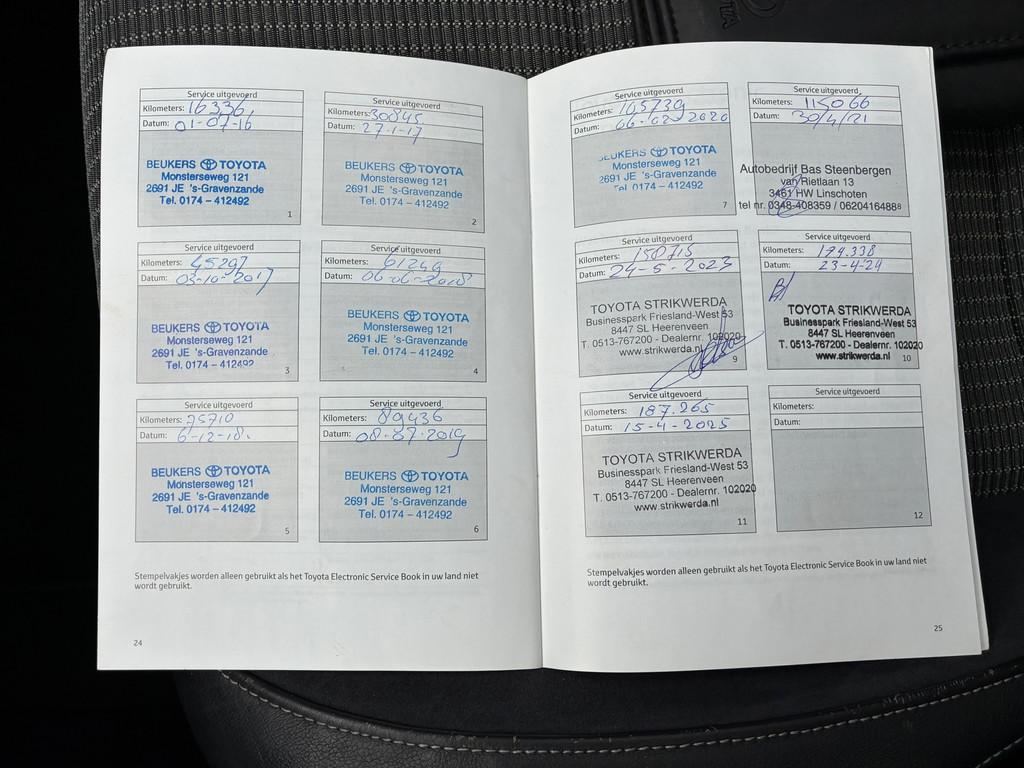 Service uitgevoerd
Kilometers: 16336
Datum: 01-07-16
BEUKERS TOYOTA
Monsterseweg 121
2691 JE 's-Gravenzande
Tel. 0174 – 412492
1
Service uitgevoerd
Kilometers: 30845
Datum: 27-1-17
BEUKERS TOYOTA
Monsterseweg 121
2691 JE 's-Gravenzande
Tel. 0174 – 412492
2
Service uitgevoerd
Kilometers: 45297
Datum: 03-10-2017
BEUKERS TOYOTA
Monsterseweg 121
2691 JE 's-Gravenzande
Tel. 0174 – 412492
3
Service uitgevoerd
Kilometers: 61249
Datum: 06-06-2018
BEUKERS TOYOTA
Monsterseweg 121
2691 JE 's-Gravenzande
Tel. 0174 – 412492
4
Service uitgevoerd
Kilometers: 75710
Datum: 6-12-18.
BEUKERS TOYOTA
Monsterseweg 121
2691 JE 's-Gravenzande
Tel. 0174 – 412492
5
Service uitgevoerd
Kilometers: 89436
Datum: 08-07-2019
BEUKERS TOYOTA
Monsterseweg 121
2691 JE 's-Gravenzande
Tel. 0174 – 412492
6
Stempelvakjes worden alleen gebruikt als het Toyota Electronic Service Book in uw land niet
wordt gebruikt.
24
Service uitgevoerd
Kilometers: 105739
Datum: 06-02-2020
BEUKERS TOYOTA
Monsterseweg 121
2691 JE 's-Gravenzande
Tel 0174 – 412492
7
Service uitgevoerd
Kilometers: 115066
Datum: 30/4/21
Autobedrijf Bas Steenbergen
van Rietlaan 13
3461 HW Linschoten
tel nr. 0348-408359 / 0620416488
8
Service uitgevoerd
Kilometers: 158715
Datum: 24-5-2023
TOYOTA STRIKWERDA
Businesspark Friesland-West 53
8447 SL Heerenveen
T. 0513-767200 - Dealernr. 102020
www.strikwerda.nl
9
Service uitgevoerd
Kilometers: 174.338
Datum: 23-4-24
TOYOTA STRIKWERDA
Businesspark Friesland-West 53
8447 SL Heerenveen
T. 0513-767200 - Dealernr. 102020
www.strikwerda.nl
10
Service uitgevoerd
Kilometers: 187.265
Datum: 15-4-2025
TOYOTA STRIKWERDA
Businesspark Friesland-West 53
8447 SL Heerenveen
T. 0513-767200 - Dealernr. 102020
www.strikwerda.nl
11
Service uitgevoerd
Kilometers:
Datum:
12
Stempelvakjes worden alleen gebruikt als het Toyota Electronic Service Book in uw land niet
wordt gebruikt.
25